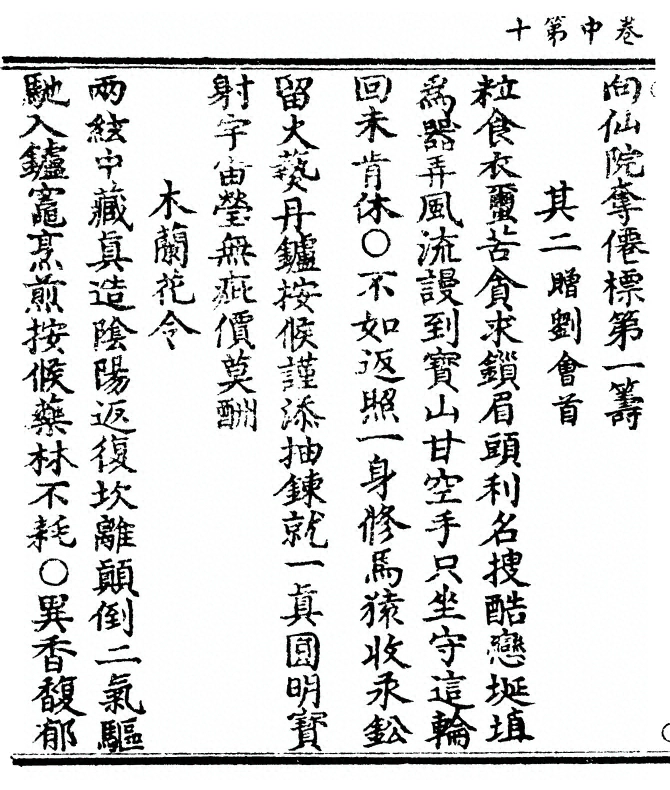 卷中第十
向仙院奪僊標第一籌
其二贈劉會首
粒食衣蠒苦貪求鎖眉頭利名搜酷戀埏埴
為器弄風流謾到寶山甘空手只坐守這輪
回未肯休〇不如返照一身修馬猿收汞鈆
留火爇丹鑪按候謹添抽鍊就一真圓明寶
射宇宙瑩無疵價莫酬
木蘭花令
兩絃中藏真造陰陽返復坎離顛倒二氣驅
馳入鑪竈烹煎按候藥材不耗〇異香馥郁